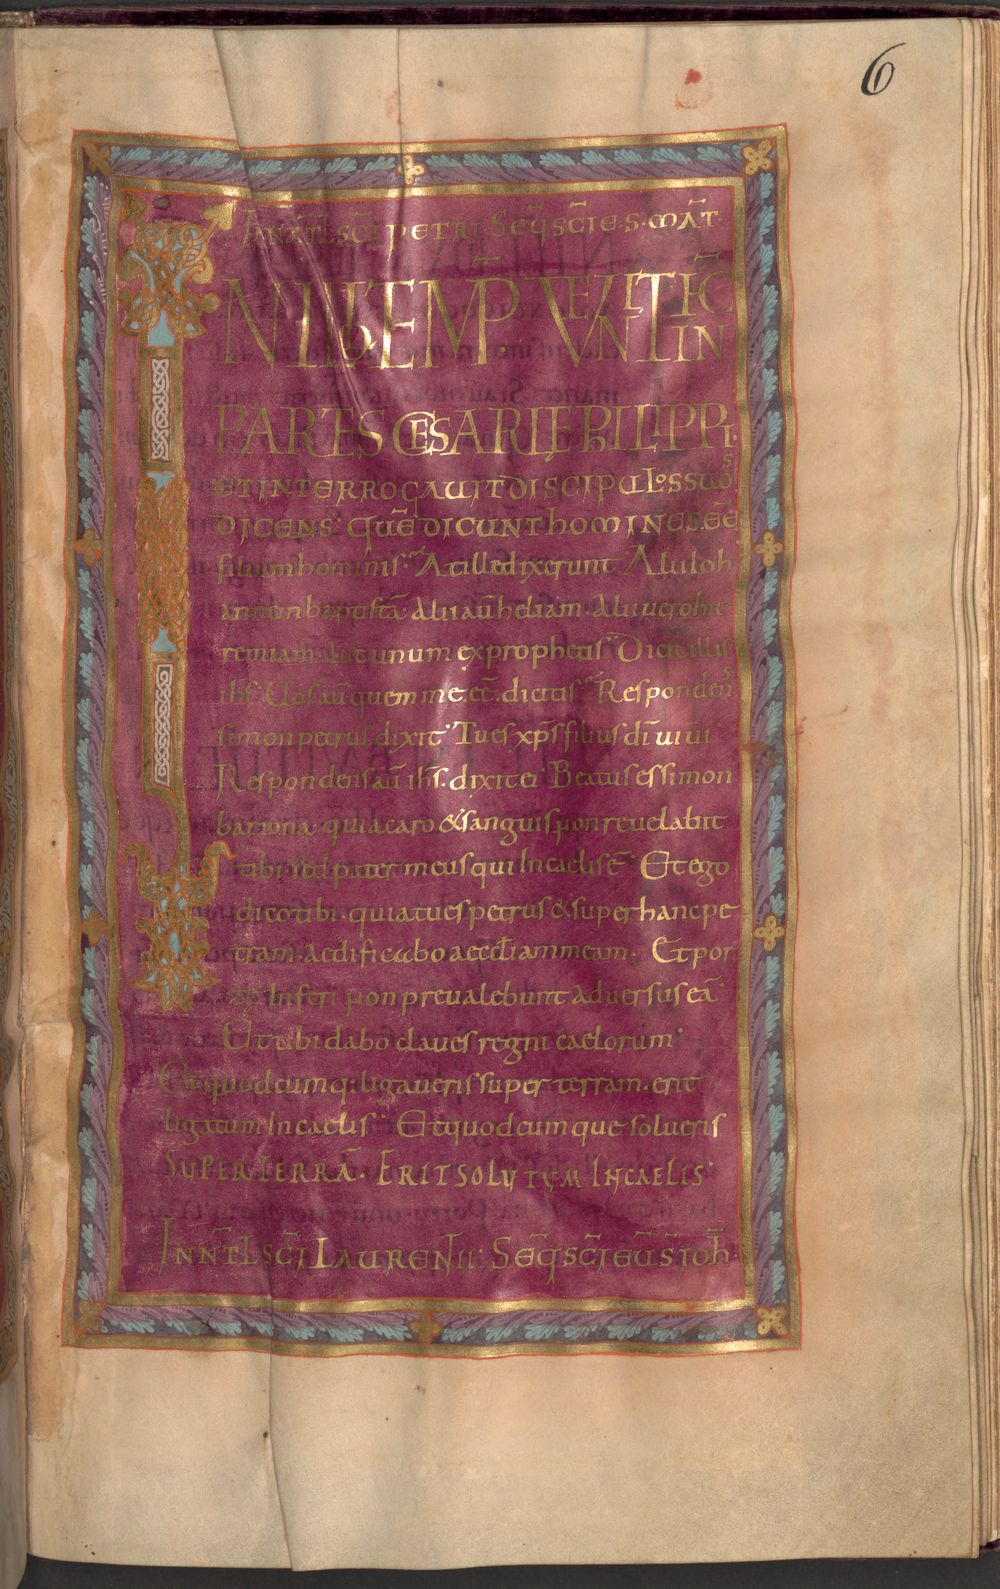 6
IN NAT̄L SC̄I PETRI· SEQ̄ SC̄I E·S· MAT̄·
IN ILL TEMP̄ VENIT IHC̄
IN
PARTES CESARIĘ PHILIPPI·
ET INTERROGAUIT DISCIPULOS SUOS
DICENS· QUĒ DICUNT HOMINES EĒ
filium hominis· At illi dixerunt Alii ioh
annen baptistā Alii aū heliam· Alii uero hie
remiam· aut unum ex prophetis· Dicit illis
ihs̄· Uos aū quem me· eē· dicitis· Respondens
simon petrus· dixit· Tu es xps̄ filius dī uiui·
Respondens aū ihs̄· dixit ei· Beatus es simon
bariona· quia caro & sanguis non reuelabit
tibi sed pater meus qui In caelis ē· Et ego
dico tibi· quia tu es petrus & super hanc pe
tram· aedificabo aecclīam meam· Et por
tę Inferi non preualebunt aduersus eā·
Et tibi dabo claues regni caelorum·
Et quodcumq; ligaueris super terram· erit
ligatum In caelis· Et quodcumque solueris
SUPER TERRĀ· ERIT SOLUTUM IN CAELIS·
IN NT̄L SC̄I LAURENTII· SEQ̄ SC̄I EŪS IOH̄·